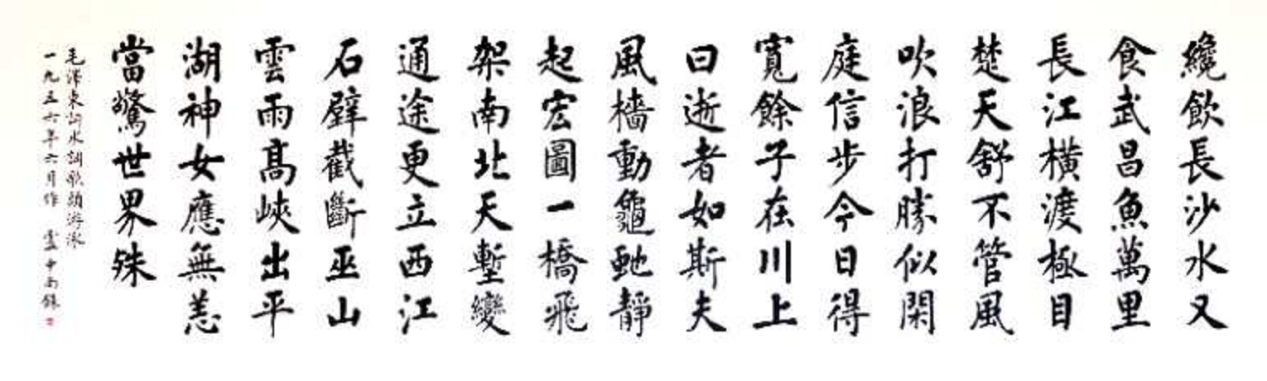 纔飲長沙水又
食武昌魚萬里
長江橫渡極目
楚天舒不管風
吹浪打勝似閑
庭信步今日得
寬餘子在川上
曰逝者如斯夫
風檣動龜虵靜
起宏圖一橋飛
架南北天塹變
通途更立西江
石壁截斷巫山
雲雨高峽出平
湖神女應無恙
當驚世界殊
毛澤東詞水調歌頭游泳
一九五六年六月作 盧中南錄